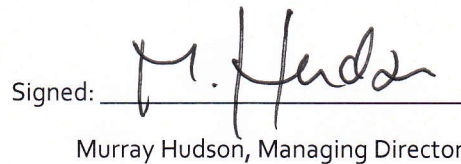 Signed: M. Hudson
Murray Hudson, Managing Director